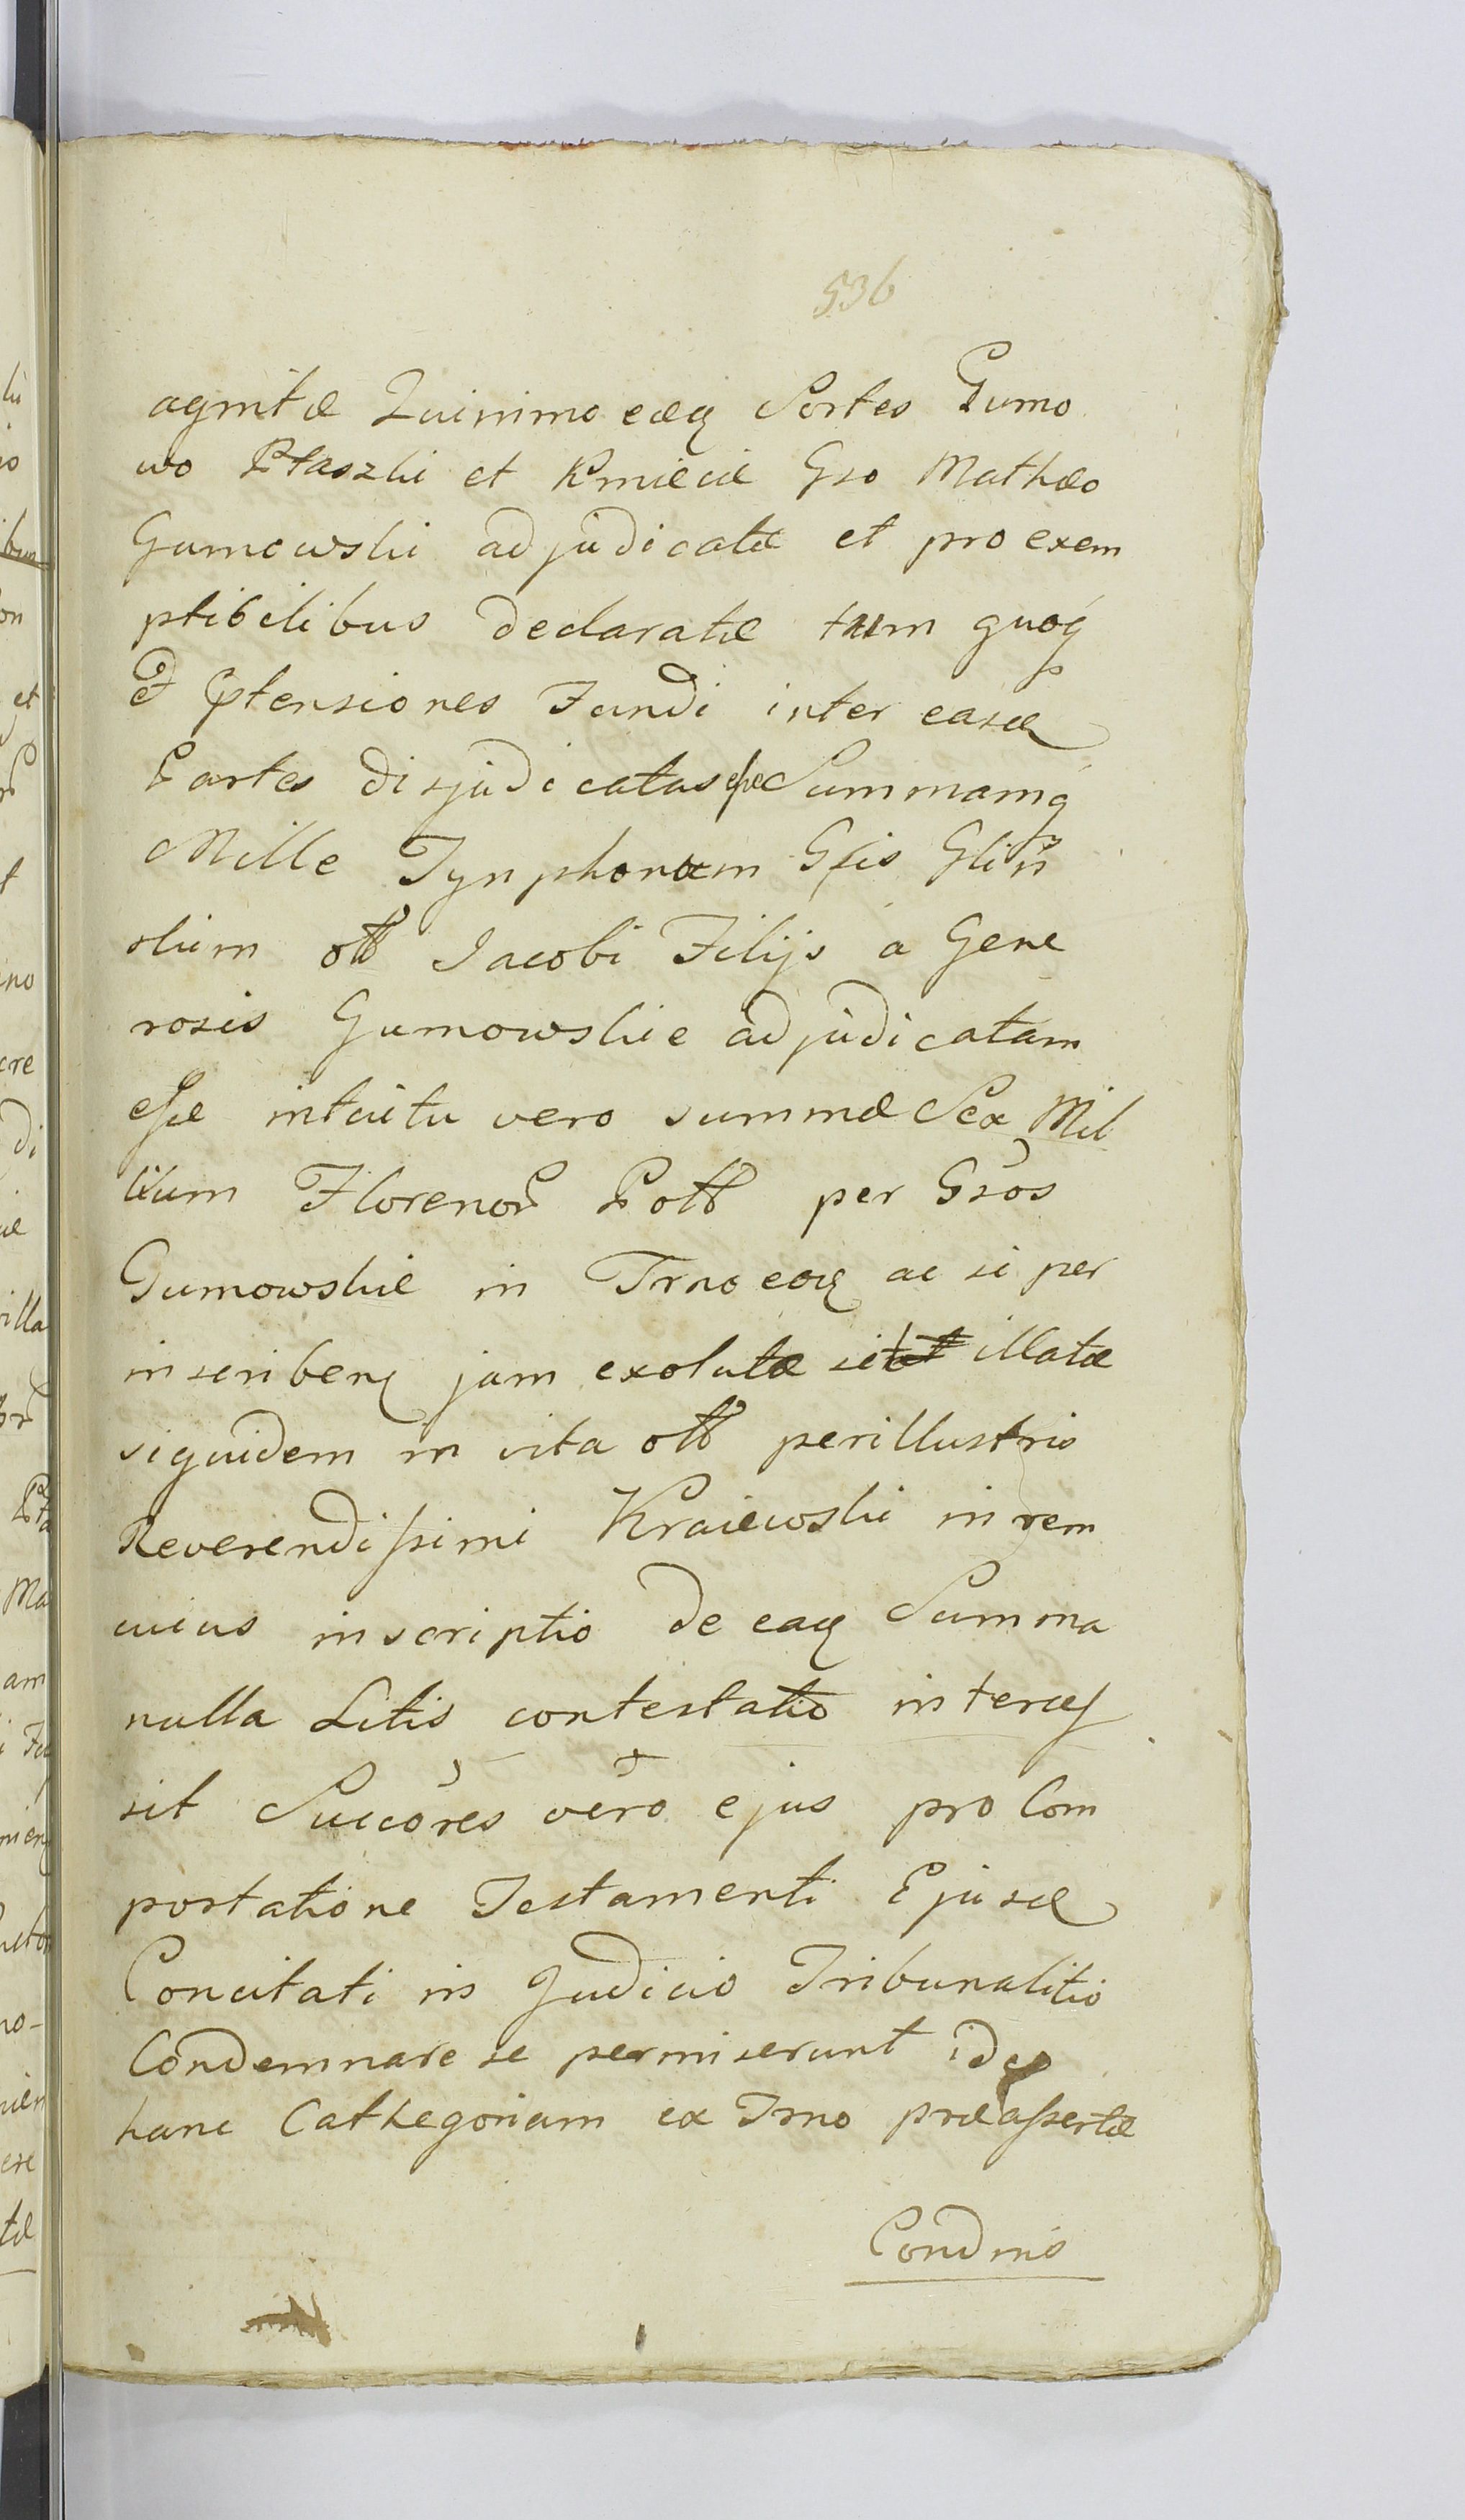 536
agnitæ Quinimo eæq Sortes Gumo
wo Ptaszki et Kmiecie Gso Mathæo
Gumowski adjudicatæ et pro exem
ptibilibus declaratæ tum quoq
Et prtensiones Fundi inter easd
Partes disjudicatas esse Summamq
Mille Tynphonum Gsis Glin
skim olt Jacobi Filijs a Gene
rosis Gumowskie adjudicatam
esse intuitu vero summæ Sex Mil
lium Florenor Poll per Gsos
Gumowskie in Trno eoq ac si per
inscribenq jam exolutæ sit illatæ
siquidem in vita olt perillustris
Reverendissimi Kraiewski in rem
cuius inscriptio de eaq Summa
nulla Litis contestatio interces
sit Succores vero ejus pro Com
portatione Testamenti Ejusd
Concitati in Judicio Tribunalitio
Condemnare se permiserunt ideo
hanc Cathegoriam ex Trno præassertæ
Condnis